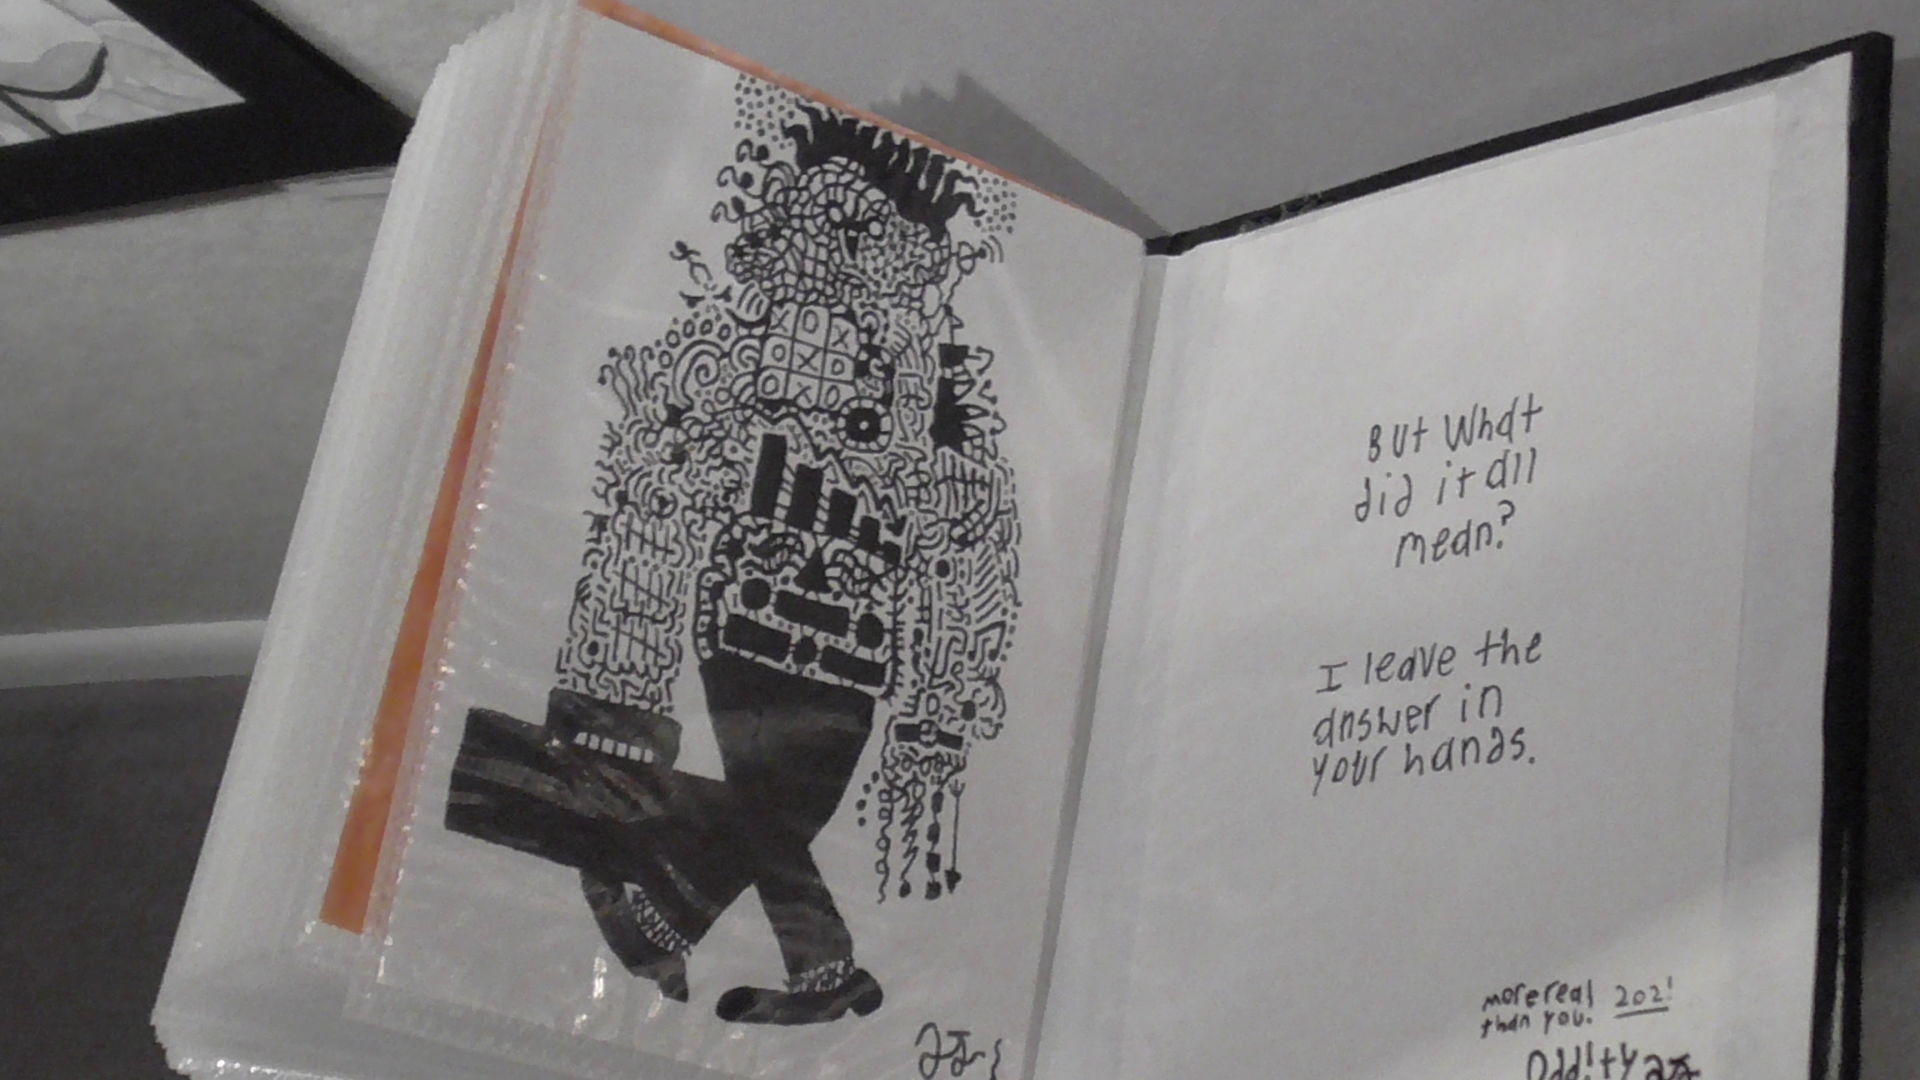 X O X
O X O
O X O
But What
did it all
mean?
I leave the
answer in
your hands.
more real 2021
than you.
Odd!ty